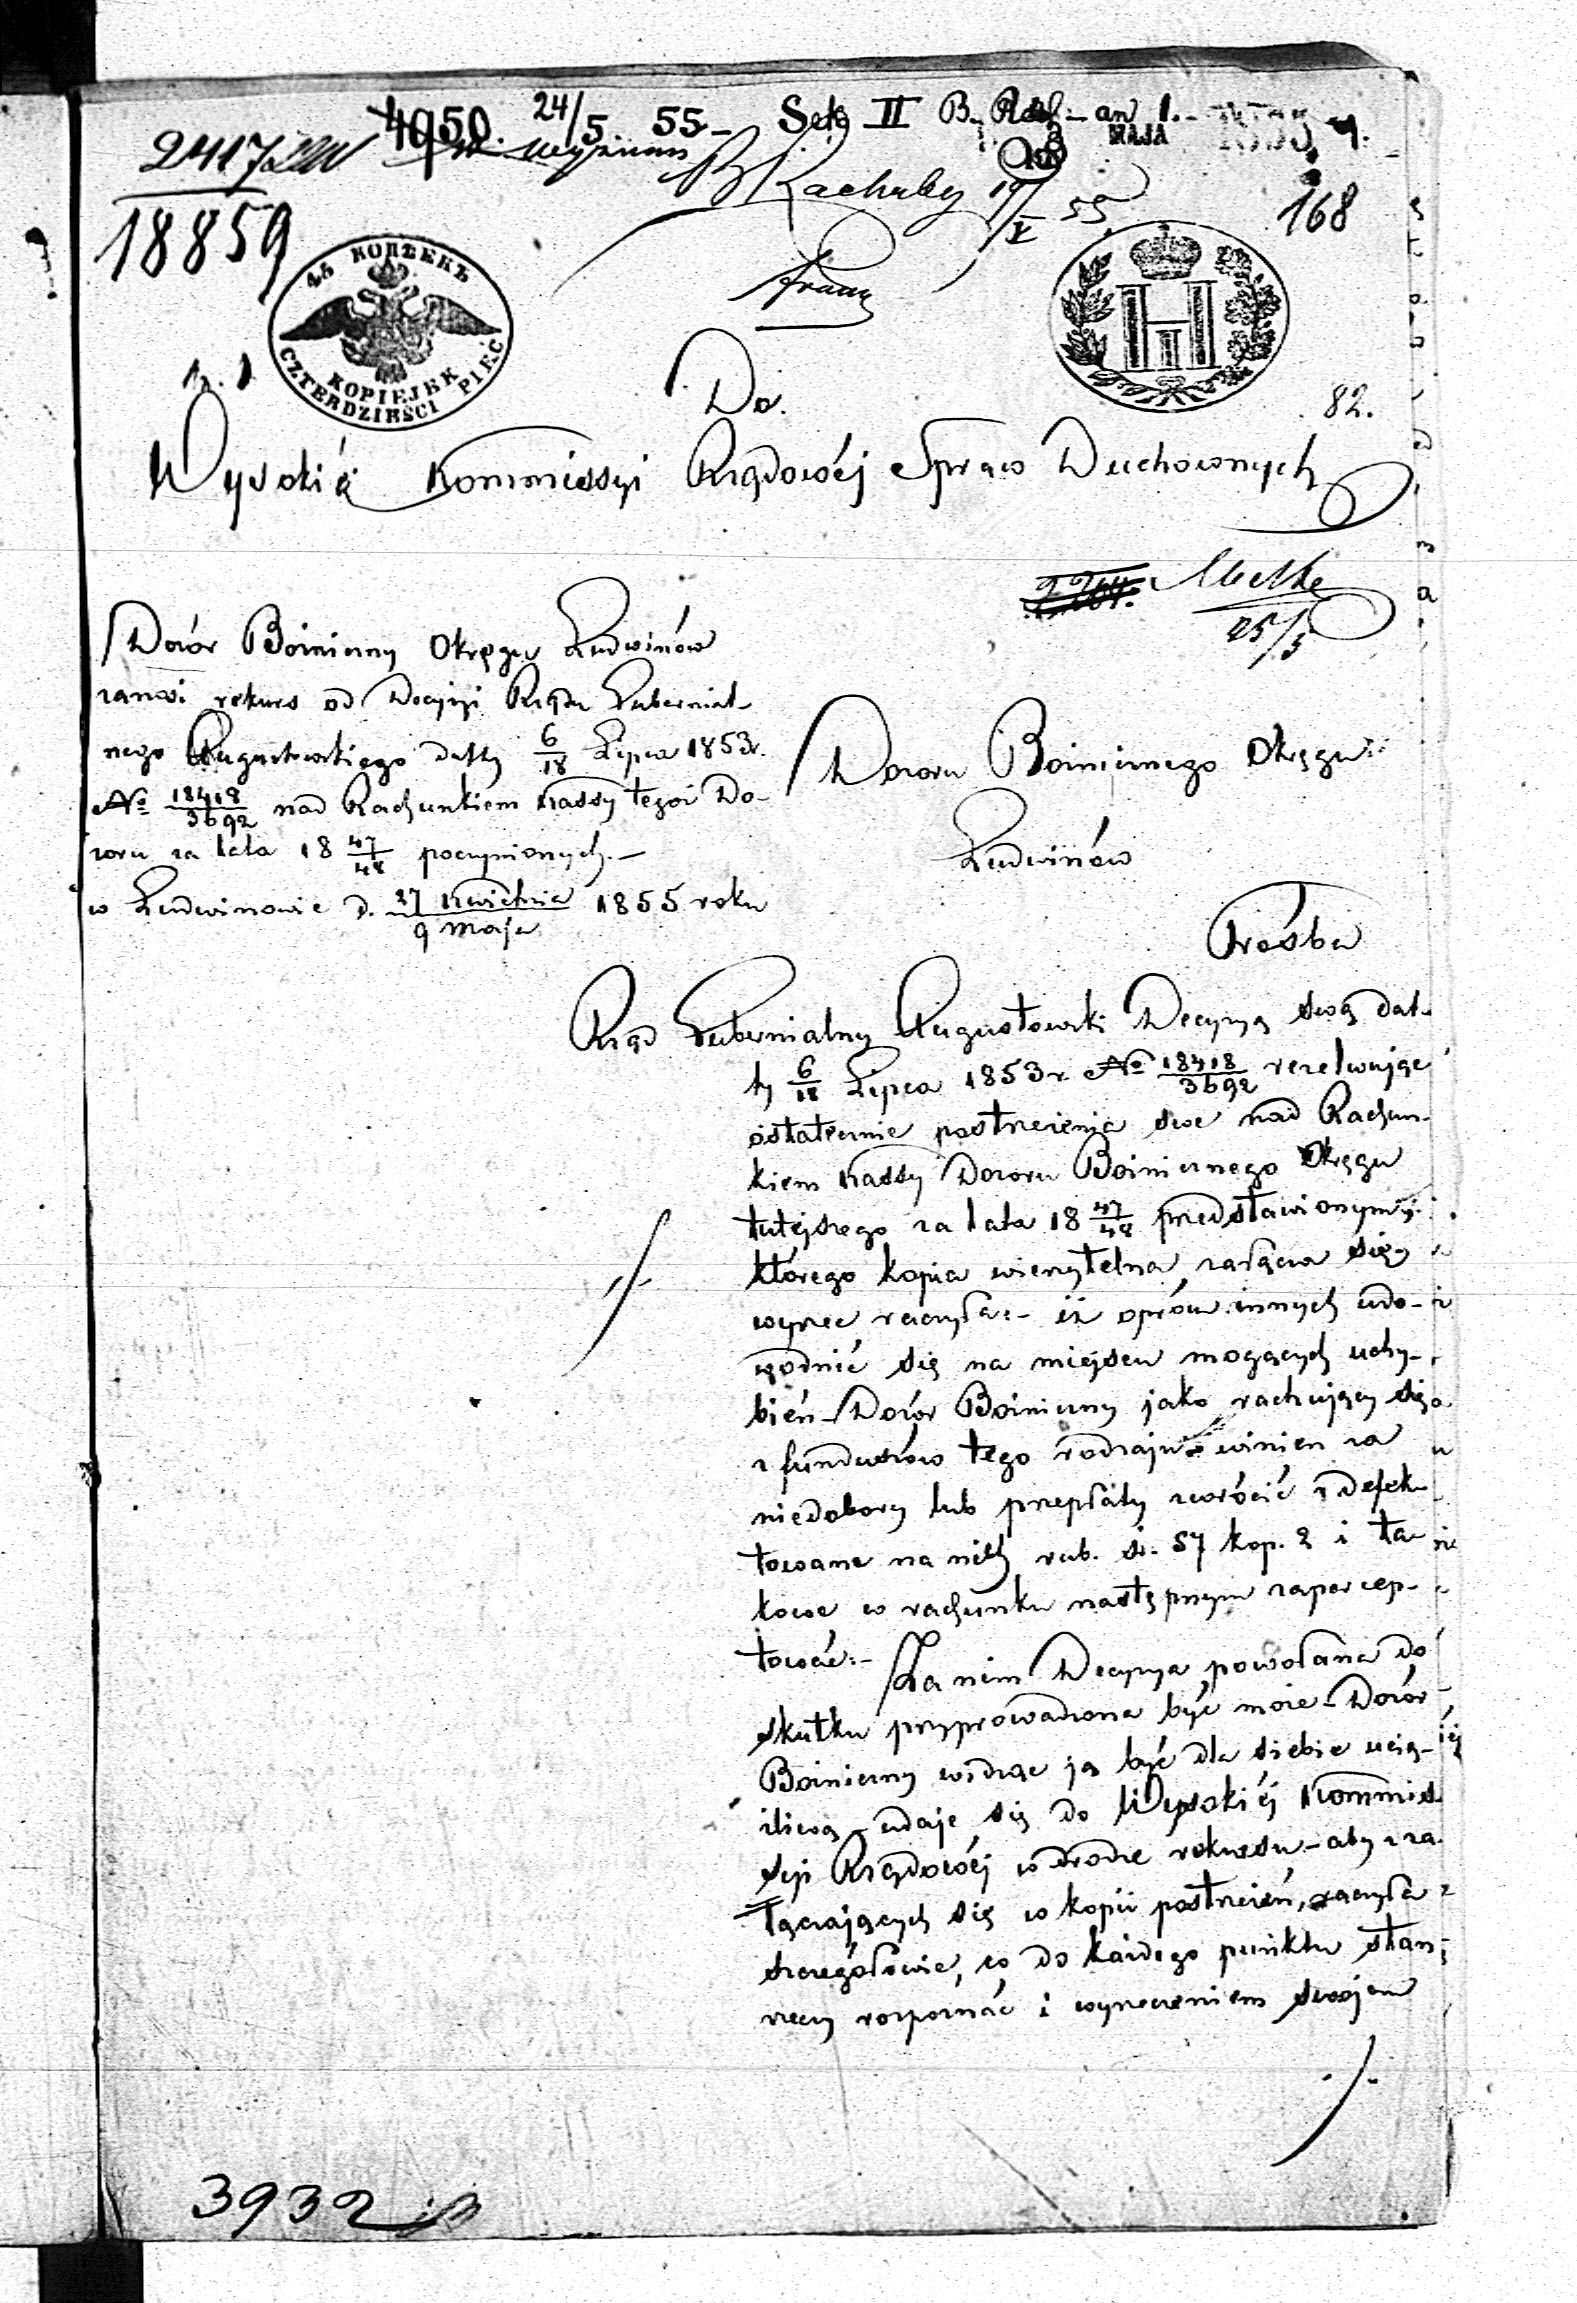 4950. 24/5. 55 – Sek. II B.
MAJA
2417
18859
B Rachuby 19/V 55
168
45 КОПѢЕКЪ
KOPIEJEK
CZTERDZIEŚCI PIĘĆ
82.
Do.
Wysokiéj Kommissyi Rządowéj Spraw Duchownych
25/5
Dozór Bożniczny Okręgu Ludwinów
zanosi rekurs od Decyzyi Rządu Gubernial-
nego Augustowskiego datty 6/18 Lipca 1853r.
No 18418/3692 nad Rachunkiem Kassy tegoż Do-
zoru za lata 18 47/48 poczynionych.–
w Ludwinowie d. 27 Kwietnia/9 Maja 1855 roku
Dozoru Bożnicznego Okręgu
Ludwinów
Prośba
Rząd Gubernialny Augustowski Decyzyą swą dat-
ty 6/18 Lipca 1853 r. No 18418/3692 rezolwując
ostatecznie postrzeżenia swe nad Rachun-
kiem Kassy Dozoru Bożnicznego Okręgu
tutejszego za lata 18 47/48 przedstawionym,
którego kopia wierzytelna załącza się,
wyrzec raczyła:– iż oprócz innych udo-
wodnić się na miejscu mogących uchy-
bień – Dozór Bożniczny jako rachujący się
z funduszów tego rodzaju winien za
niedobory lub przepłaty zwrócić zdefek-
towane na nich rub. sr. 57 kop. 2 i ta-
kowe w rachunku następnym zapercep-
tować.–
Zanim Decyzya powołana do
skutku przyprowadzona być może – Dozór
Bożniczny widząc ją być dla siebie ucią-
żliwą – udaje się do Wysokiéj Kommis-
syi Rządowéj w drodze rekursu – aby z za-
łączających się w kopii postrzeżeń, raczyła
szczegółowie, co do każdego punktu stan
rzeczy rozpoznać i wyrzeczeniem swojem
./.
3932